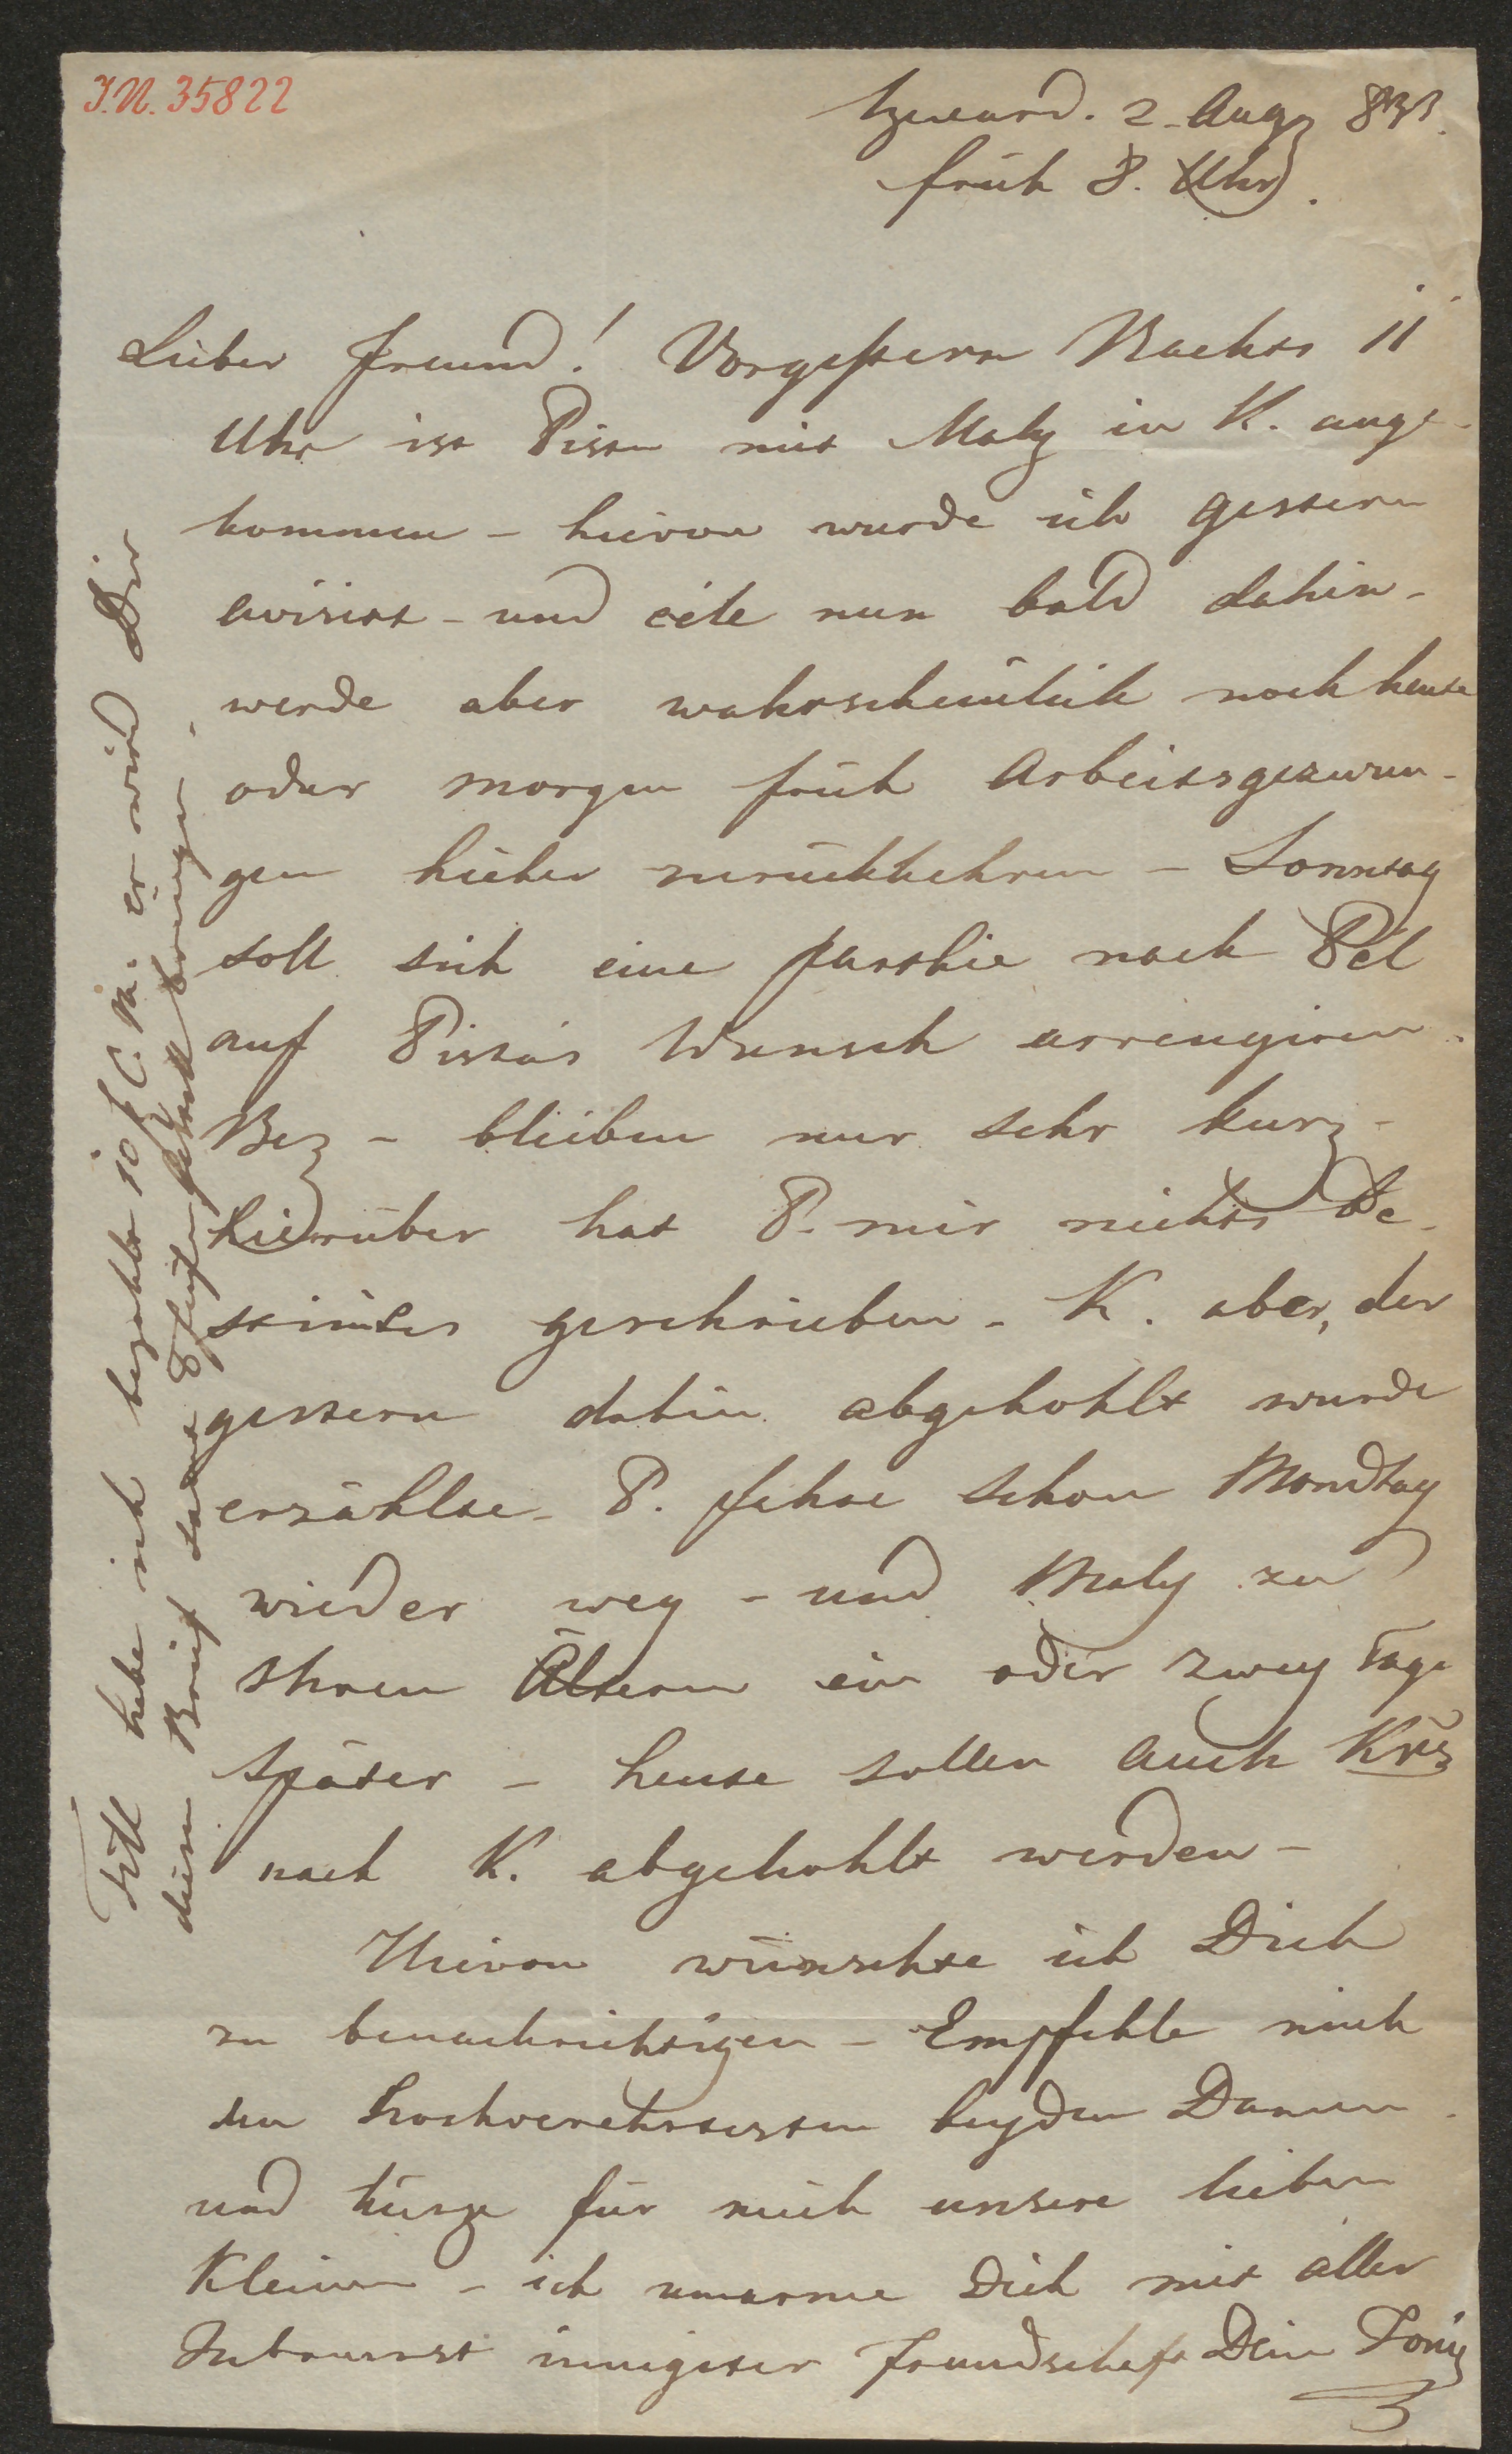 I.N. 35822
2. Aug 833.
früh 8. Uhr.
Lieber Freund! Vorgestern Nachts 11
Uhr ist Pista mit Maly in K. ange-
kommen – hievon wurde ich gestern
avisirt – und eile nun bald dahin –
werde aber wahrscheinlich noch heute
oder morgen früh Arbeitsgezwun-
gen hieher zurückkehren – Sonntag
soll sich eine parthie nach Pél
auf Pista's Wunsch arrengiren.
Bez – bleiben nur sehr kurz –
hierüber hat P. mir nichts Be-
stimtes geschrieben – K. aber, der
gestern dahin abgehohlt wurde
erzählte – P. fahre schon Mondtag
wieder weg – und Maly zu
Ihren Ältern ein oder zwey Tage
später – heute sollen auch
nach K. abgehohlt werden –
Hievon wünschte ich Dich
zu benachrichtigen – Empfehle mich
den Hochverehrtesten beyden Damen
und küsse für mich unsere lieben
Kleinen – ich umarme Dich mit aller
Inbrunst innigster Freundschaft Dein Tony
habe ich bezahlt 10 f C. M. er wird Dir
diesen Brief bringen –